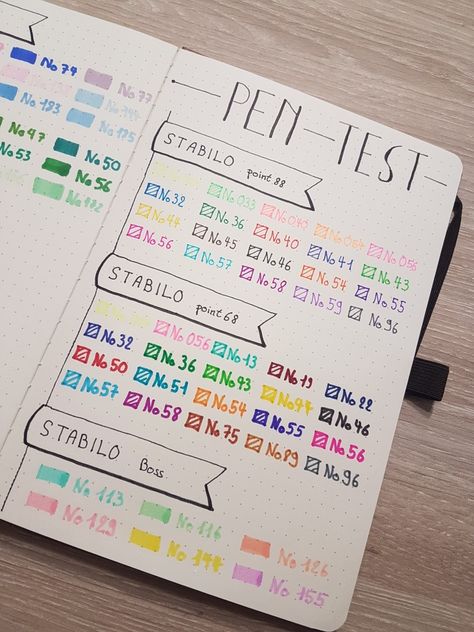 No 74 No 77
No 125
No 47 No 50
No 53 No 56
PEN-TEST
STABILO point 88
No 033 No 040 No 054 No 056
No 32 No 36 No 40 No 41 No 43
No 44 No 45 No 46 No 54 No 55
No 56 No 57 No 58 No 59 No 96
STABILO point 68
No 056 No 13 No 19 No 22
No 32 No 36 No 43 No 44 No 46
No 50 No 51 No 54 No 55 No 56
No 57 No 58 No 75 No 89 No 96
STABILO Boss
No 113 No 116 No 126
No 129 No 144 No 155